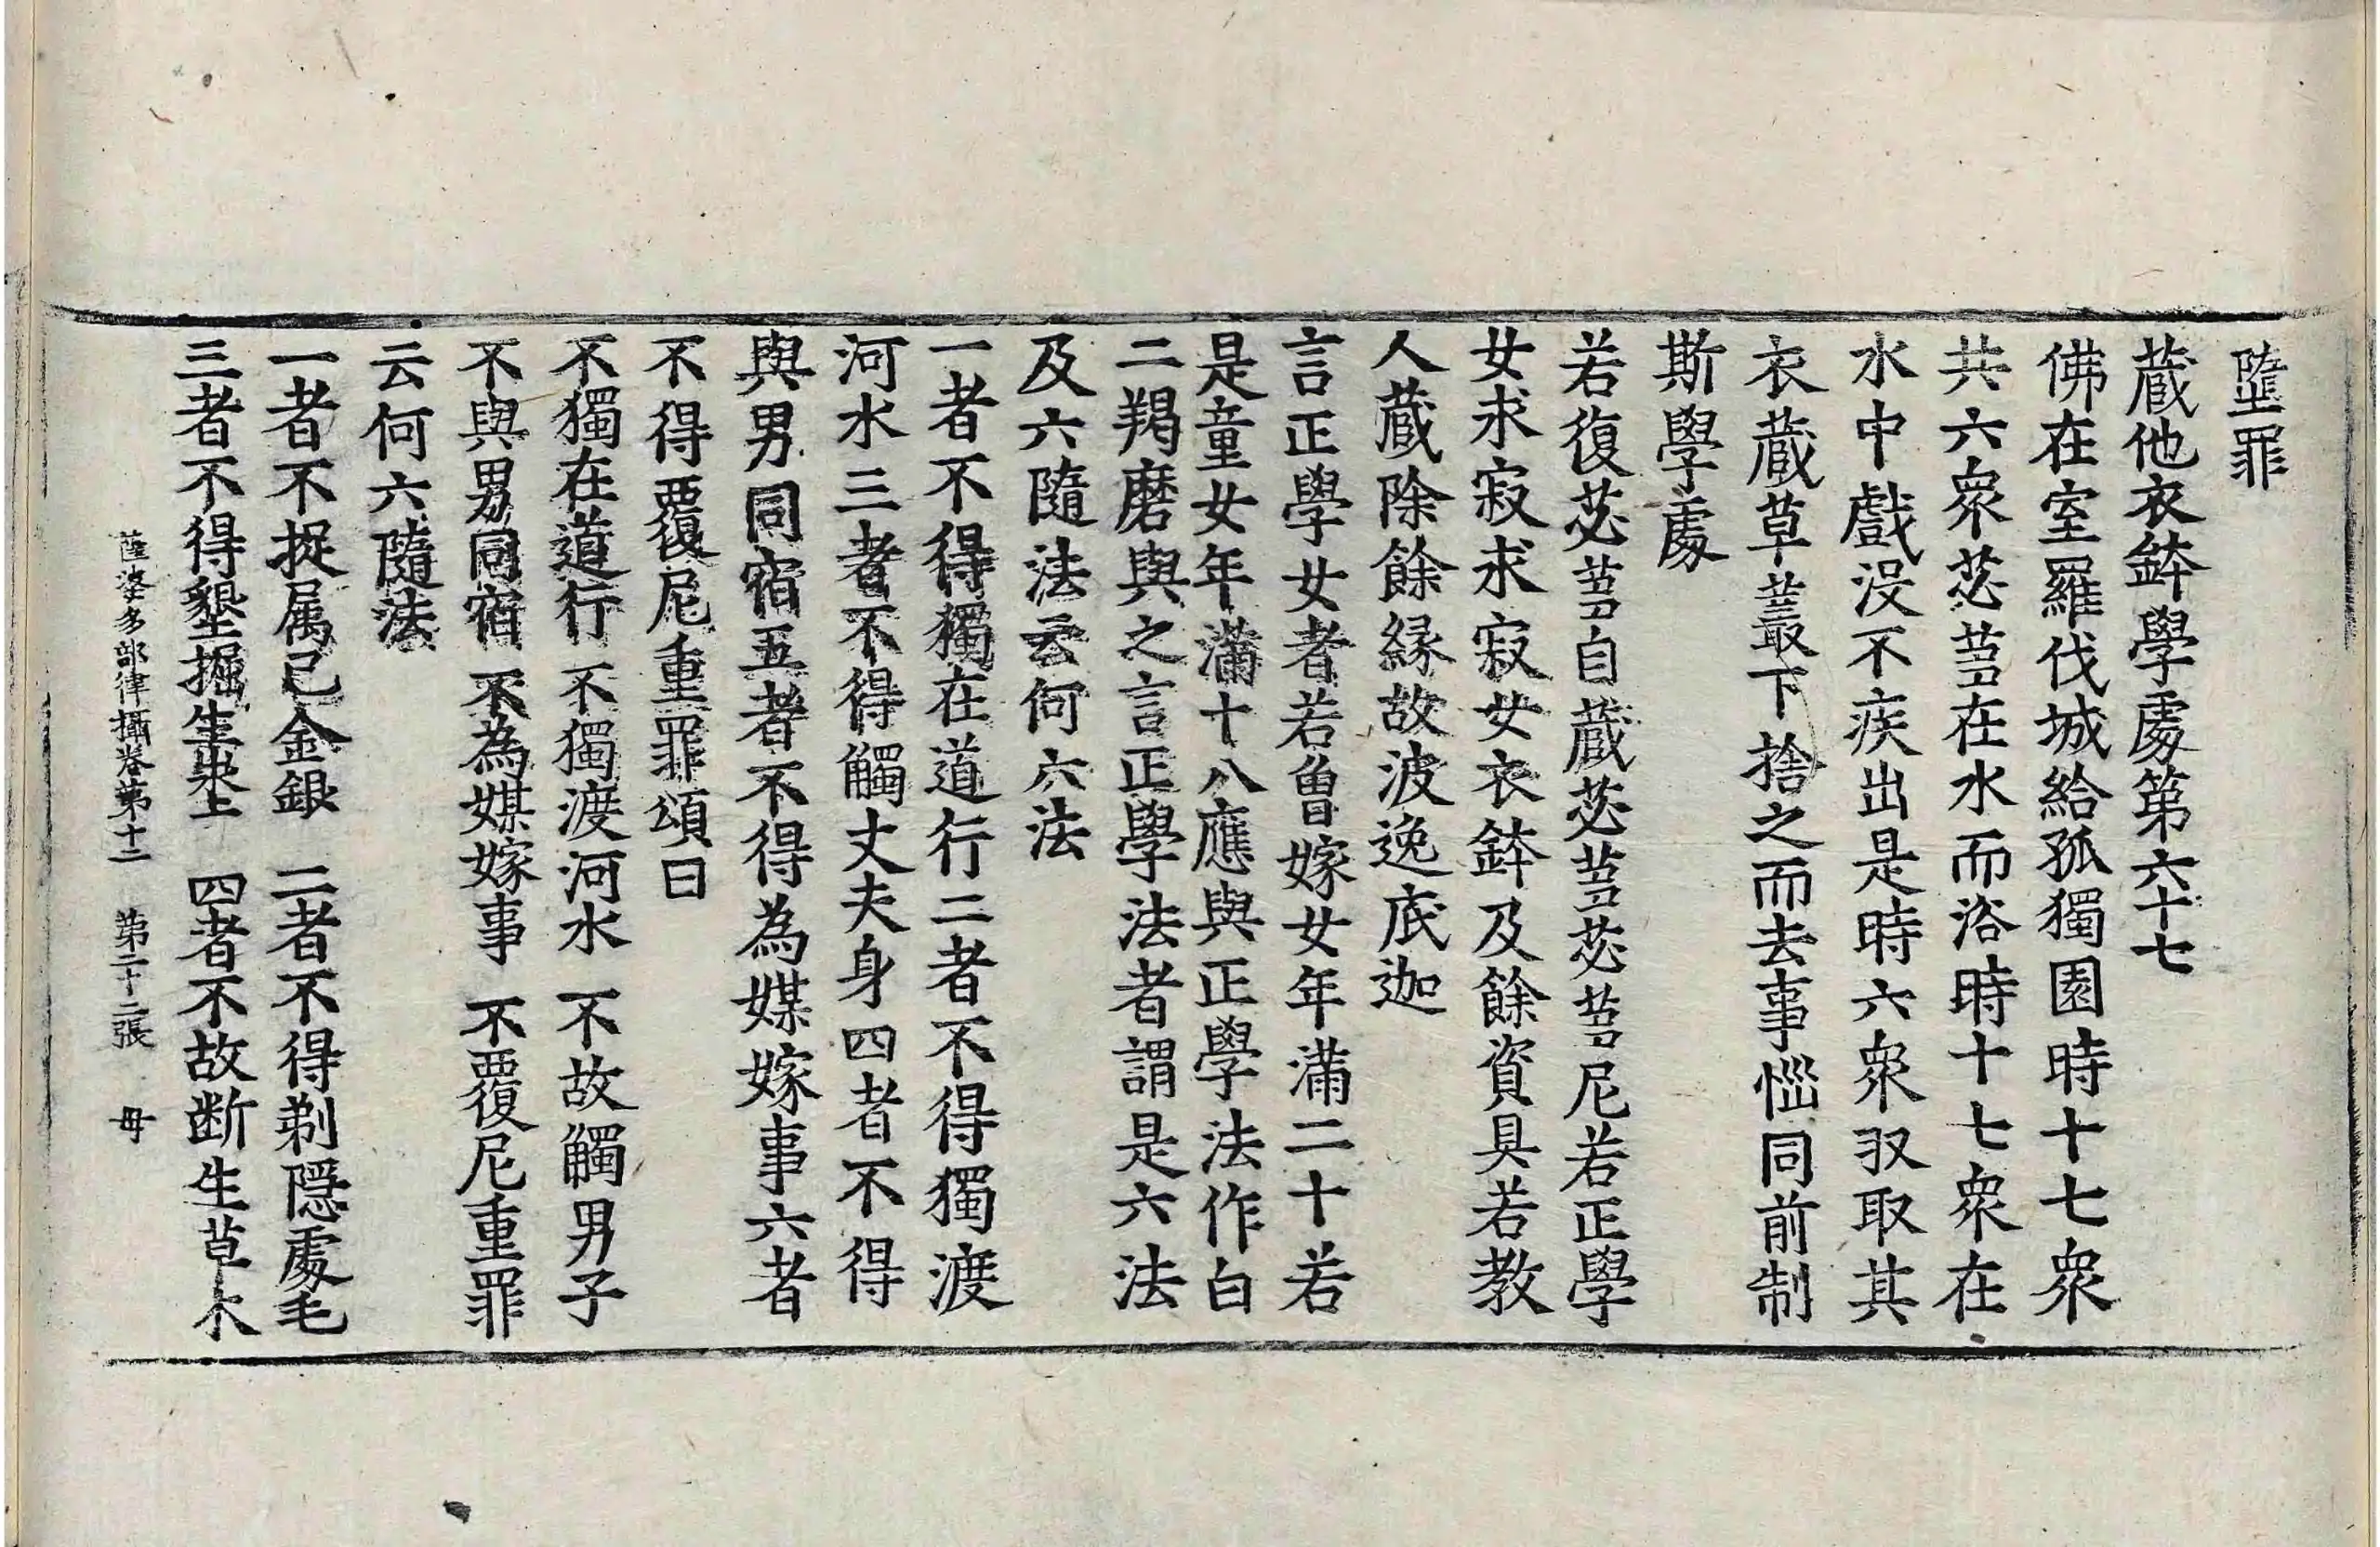 墮罪
蔵他衣鉢學處第六十七
佛在室羅伐城給孤獨園時十七衆
共六衆苾芻在水而浴時十七衆在
水中戲没不疾出是時六衆収取其
衣蔵草叢下捨之而去事惱同前制
斯學處
若復苾芻自蔵苾芻苾芻尼若正學
女求寂求寂女衣鉢及餘資具若教
人蔵除餘緣故波逸底迦
言正學女者若曾嫁女年滿二十若
是童女年滿十八應與正學法作白
二羯磨與之言正學法者謂是六法
及六隨法云何六法
一者不得獨在道行二者不得獨渡
河水三者不得觸丈夫身四者不得
與男同宿五者不得為媒嫁事六者
不得覆尼重罪頌曰
不獨在道行 不獨渡河水 不故觸男子
不與男同宿 不為媒嫁事 不覆尼重罪
云何六隨法
一者不捉属己金銀 二者不得剃隱處毛
三者不得墾掘生地上 四者不故断生草木
薩婆多部律攝卷第十二 第二十二張 毋